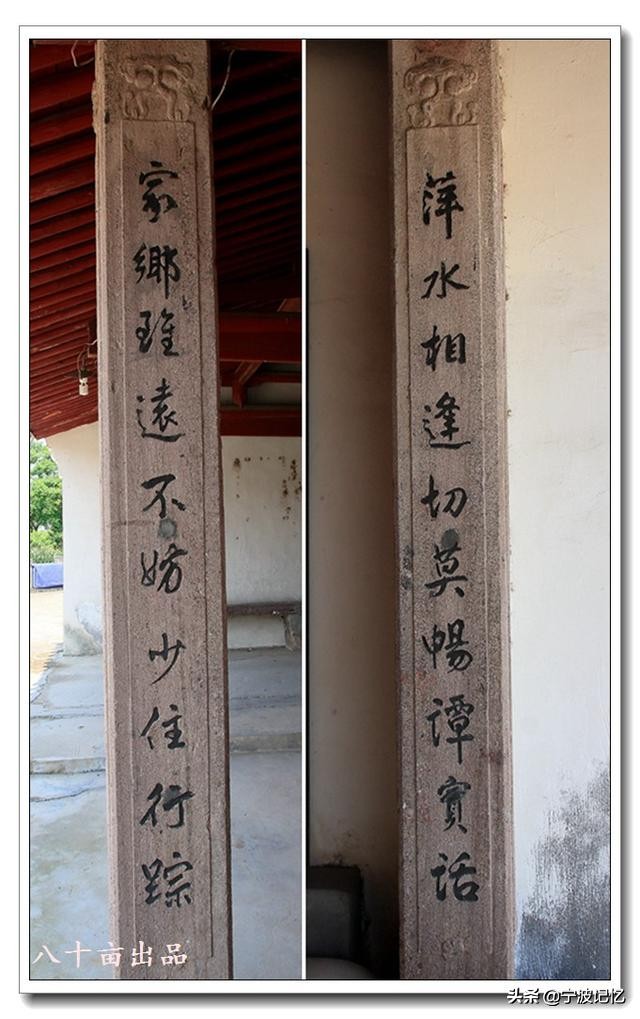 萍水相逢切莫暢譚實話
家鄉雖遠不妨少住行踪
八十亩出品
头条 @宁波记忆